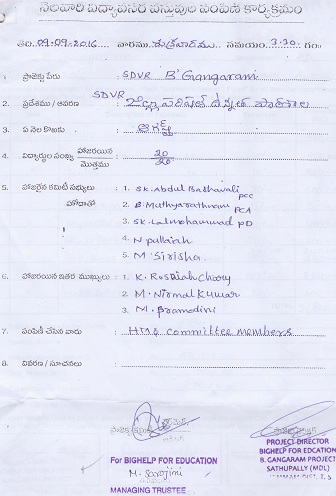 నెలవారి విద్యావసర వస్తువుల పంపిణి కార్యక్రమం
తేది. 09-09-2016 వారము శుక్రవారము సమయం 3.30 గం.
1. ప్రాజెక్టు పేరు SDVR B' Gangaram
2. ప్రదేశము / ఆవరణ SDVR జిల్లా పరిషత్ హైస్కూల్ పాఠశాల
3. ఏ నెల కొఱకు ఆగష్ట్
4. విద్యార్థుల సంఖ్య హాజరయిన 20
మొత్తము 20
5. హాజరైన కమిటీ సభ్యులు 1. SK. Abdul Bashavali PCC
హోదాతో 2. B. Muthyarathnam PCA
3. SK. Lalmohammad PD
4. N pullaiah
5. M Sirisha
6. హాజరయిన ఇతర ముఖ్యులు 1. K. Rosaiah Chowy
2. M. Nirmal Kumar
3. M. Pramodini
7. పంపిణీ చేసిన వారు HM & committee members
8. వివరణ / సూచనలు
For BIGHELP FOR EDUCATION
M. Sarojini
MANAGING TRUSTEE
PROJECT DIRECTOR
BIGHELP FOR EDCATION
B. GANGARAM PROJECT
SATHUPALLY (MDL)
KHAMMAM DIST. T.S.